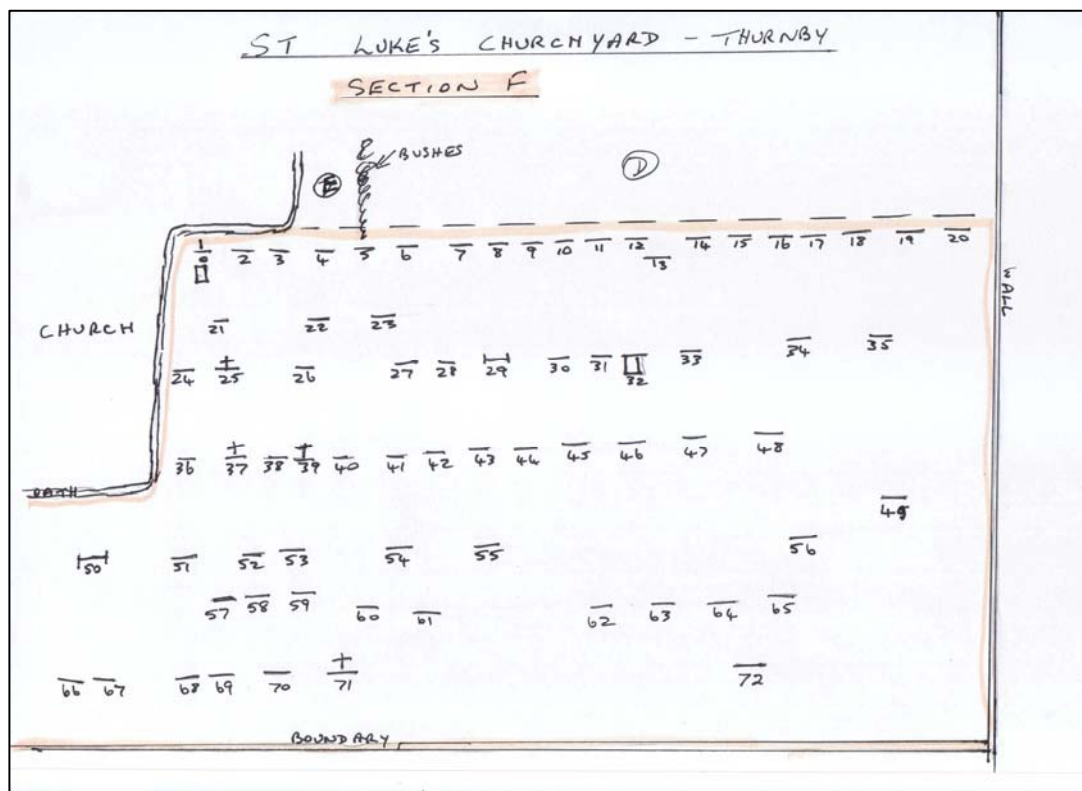 ST LUKE'S CHURCHYARD - THURNBY
SECTION F
BUSHES
E
D
1 2 3 4 5 6 7 8 9 10 11 12 13 14 15 16 17 18 19 20
WALL
CHURCH
21 22 23
24 25 26 27 28 29 30 31 32 33 34 35
36 37 38 39 40 41 42 43 44 45 46 47 48
PATH
49
50 51 52 53 54 55 56
57 58 59 60 61 62 63 64 65
66 67 68 69 70 71 72
BOUNDARY